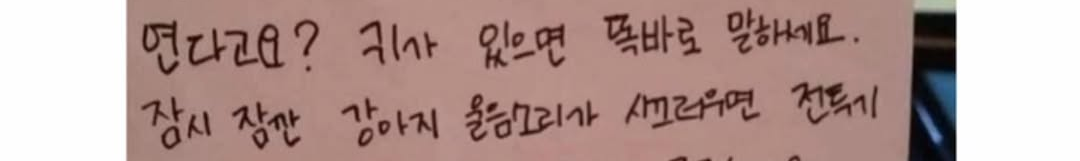 연다고요? 귀가 있으면 똑바로 말하세요.
잠시 잠깐 강아지 울음소리가 시끄러우면 전투기